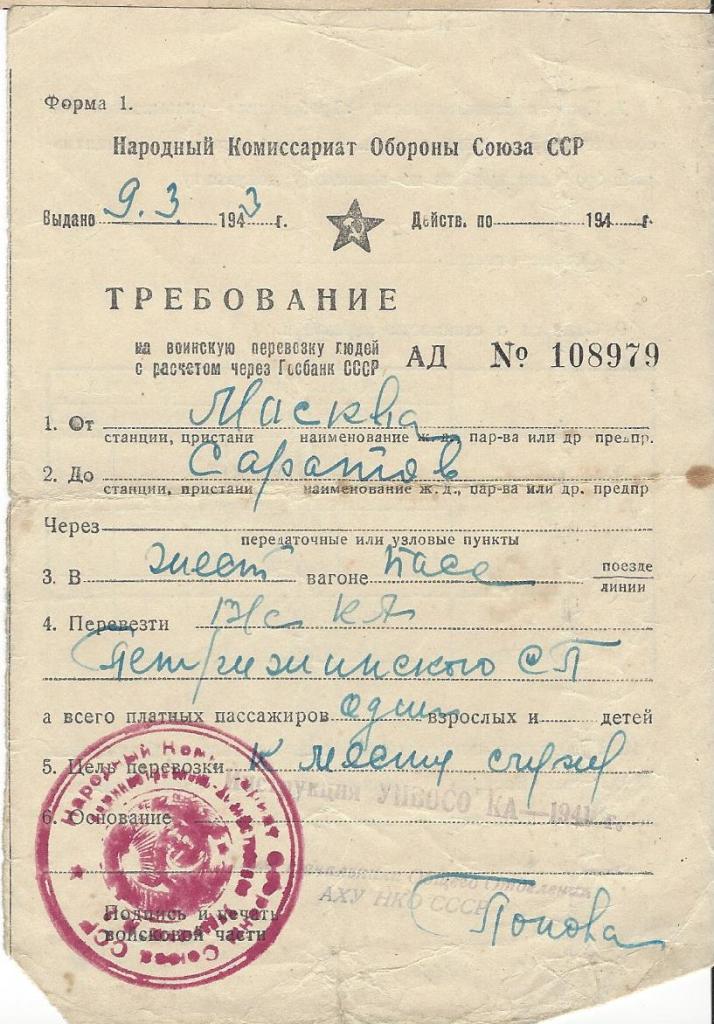 Форма 1.
Народный Комиссариат Обороны Союза ССР
Выдано 9.3. 1943 г. Действ. по 194 г.
ТРЕБОВАНИЕ
на воинскую перевозку людей
с расчетом через Госбанк СССР
АД № 108979
1. От Масква
станции, пристани наименование ж. д., пар-ва или др предпр.
2. До Саратов
станции, пристани наименование ж. д., пар-ва или др. предпр
Через
передаточные или узловые пункты
3. В жест вагоне пасс поезде
линии
4. Перевезти В/с КА
СП
а всего платных пассажиров один взрослых и детей
5. Цель перевозки к месту служ
Инструкция УПВОСО КА—1941 г.
6. Основание
Общего Отделения
АХУ НКО СССР
Подпись и печать
войсковой части
Попова
Народный Комиссариат Обороны Союза ССР